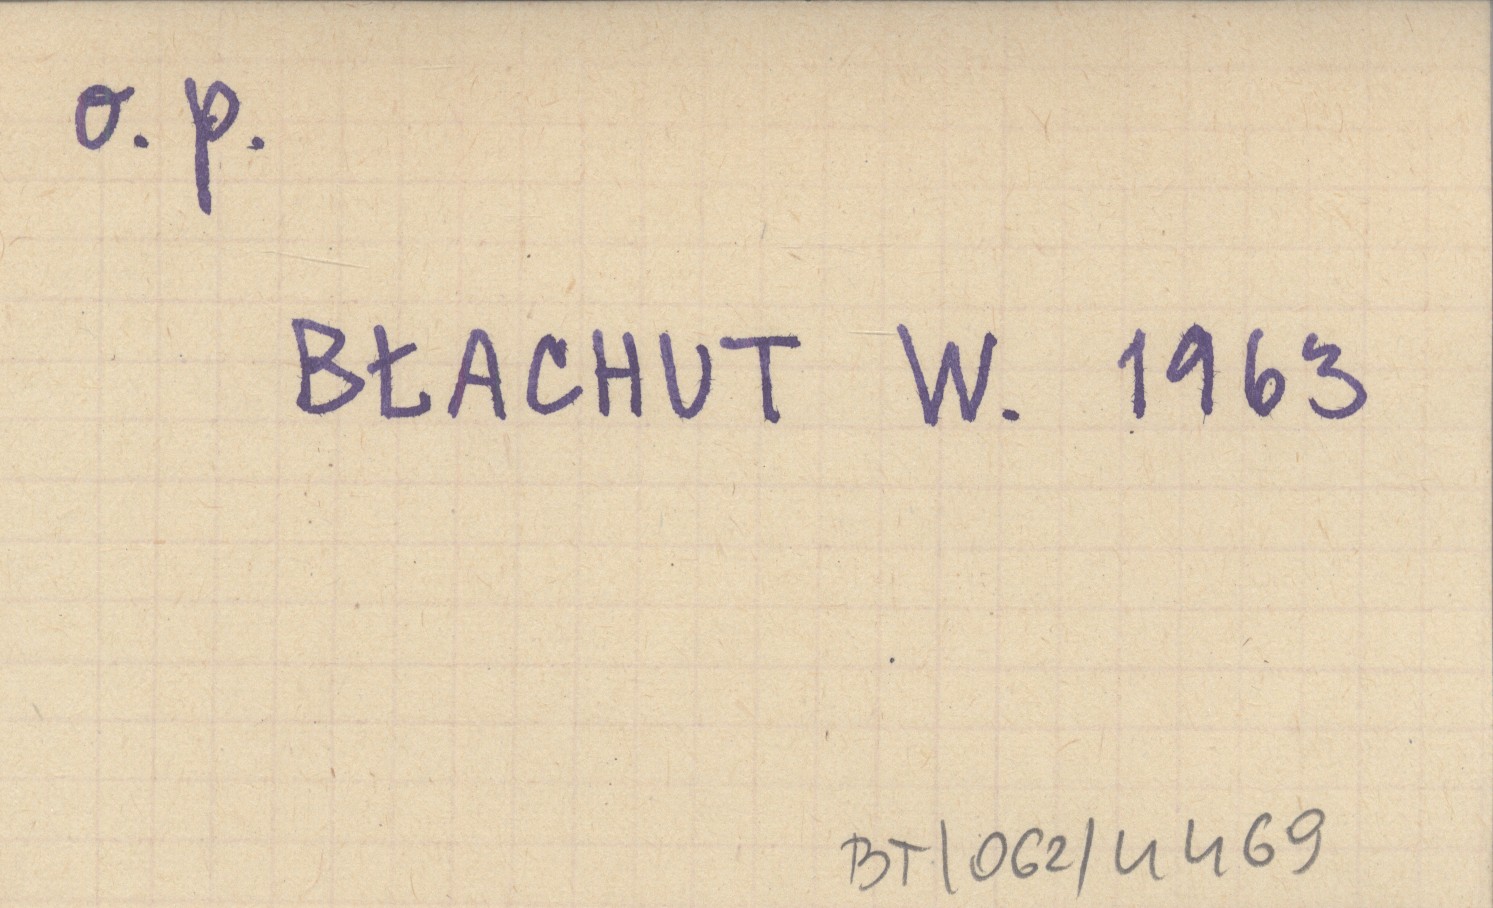 o. p.
BŁACHUT W. 1963
BT/062/4469